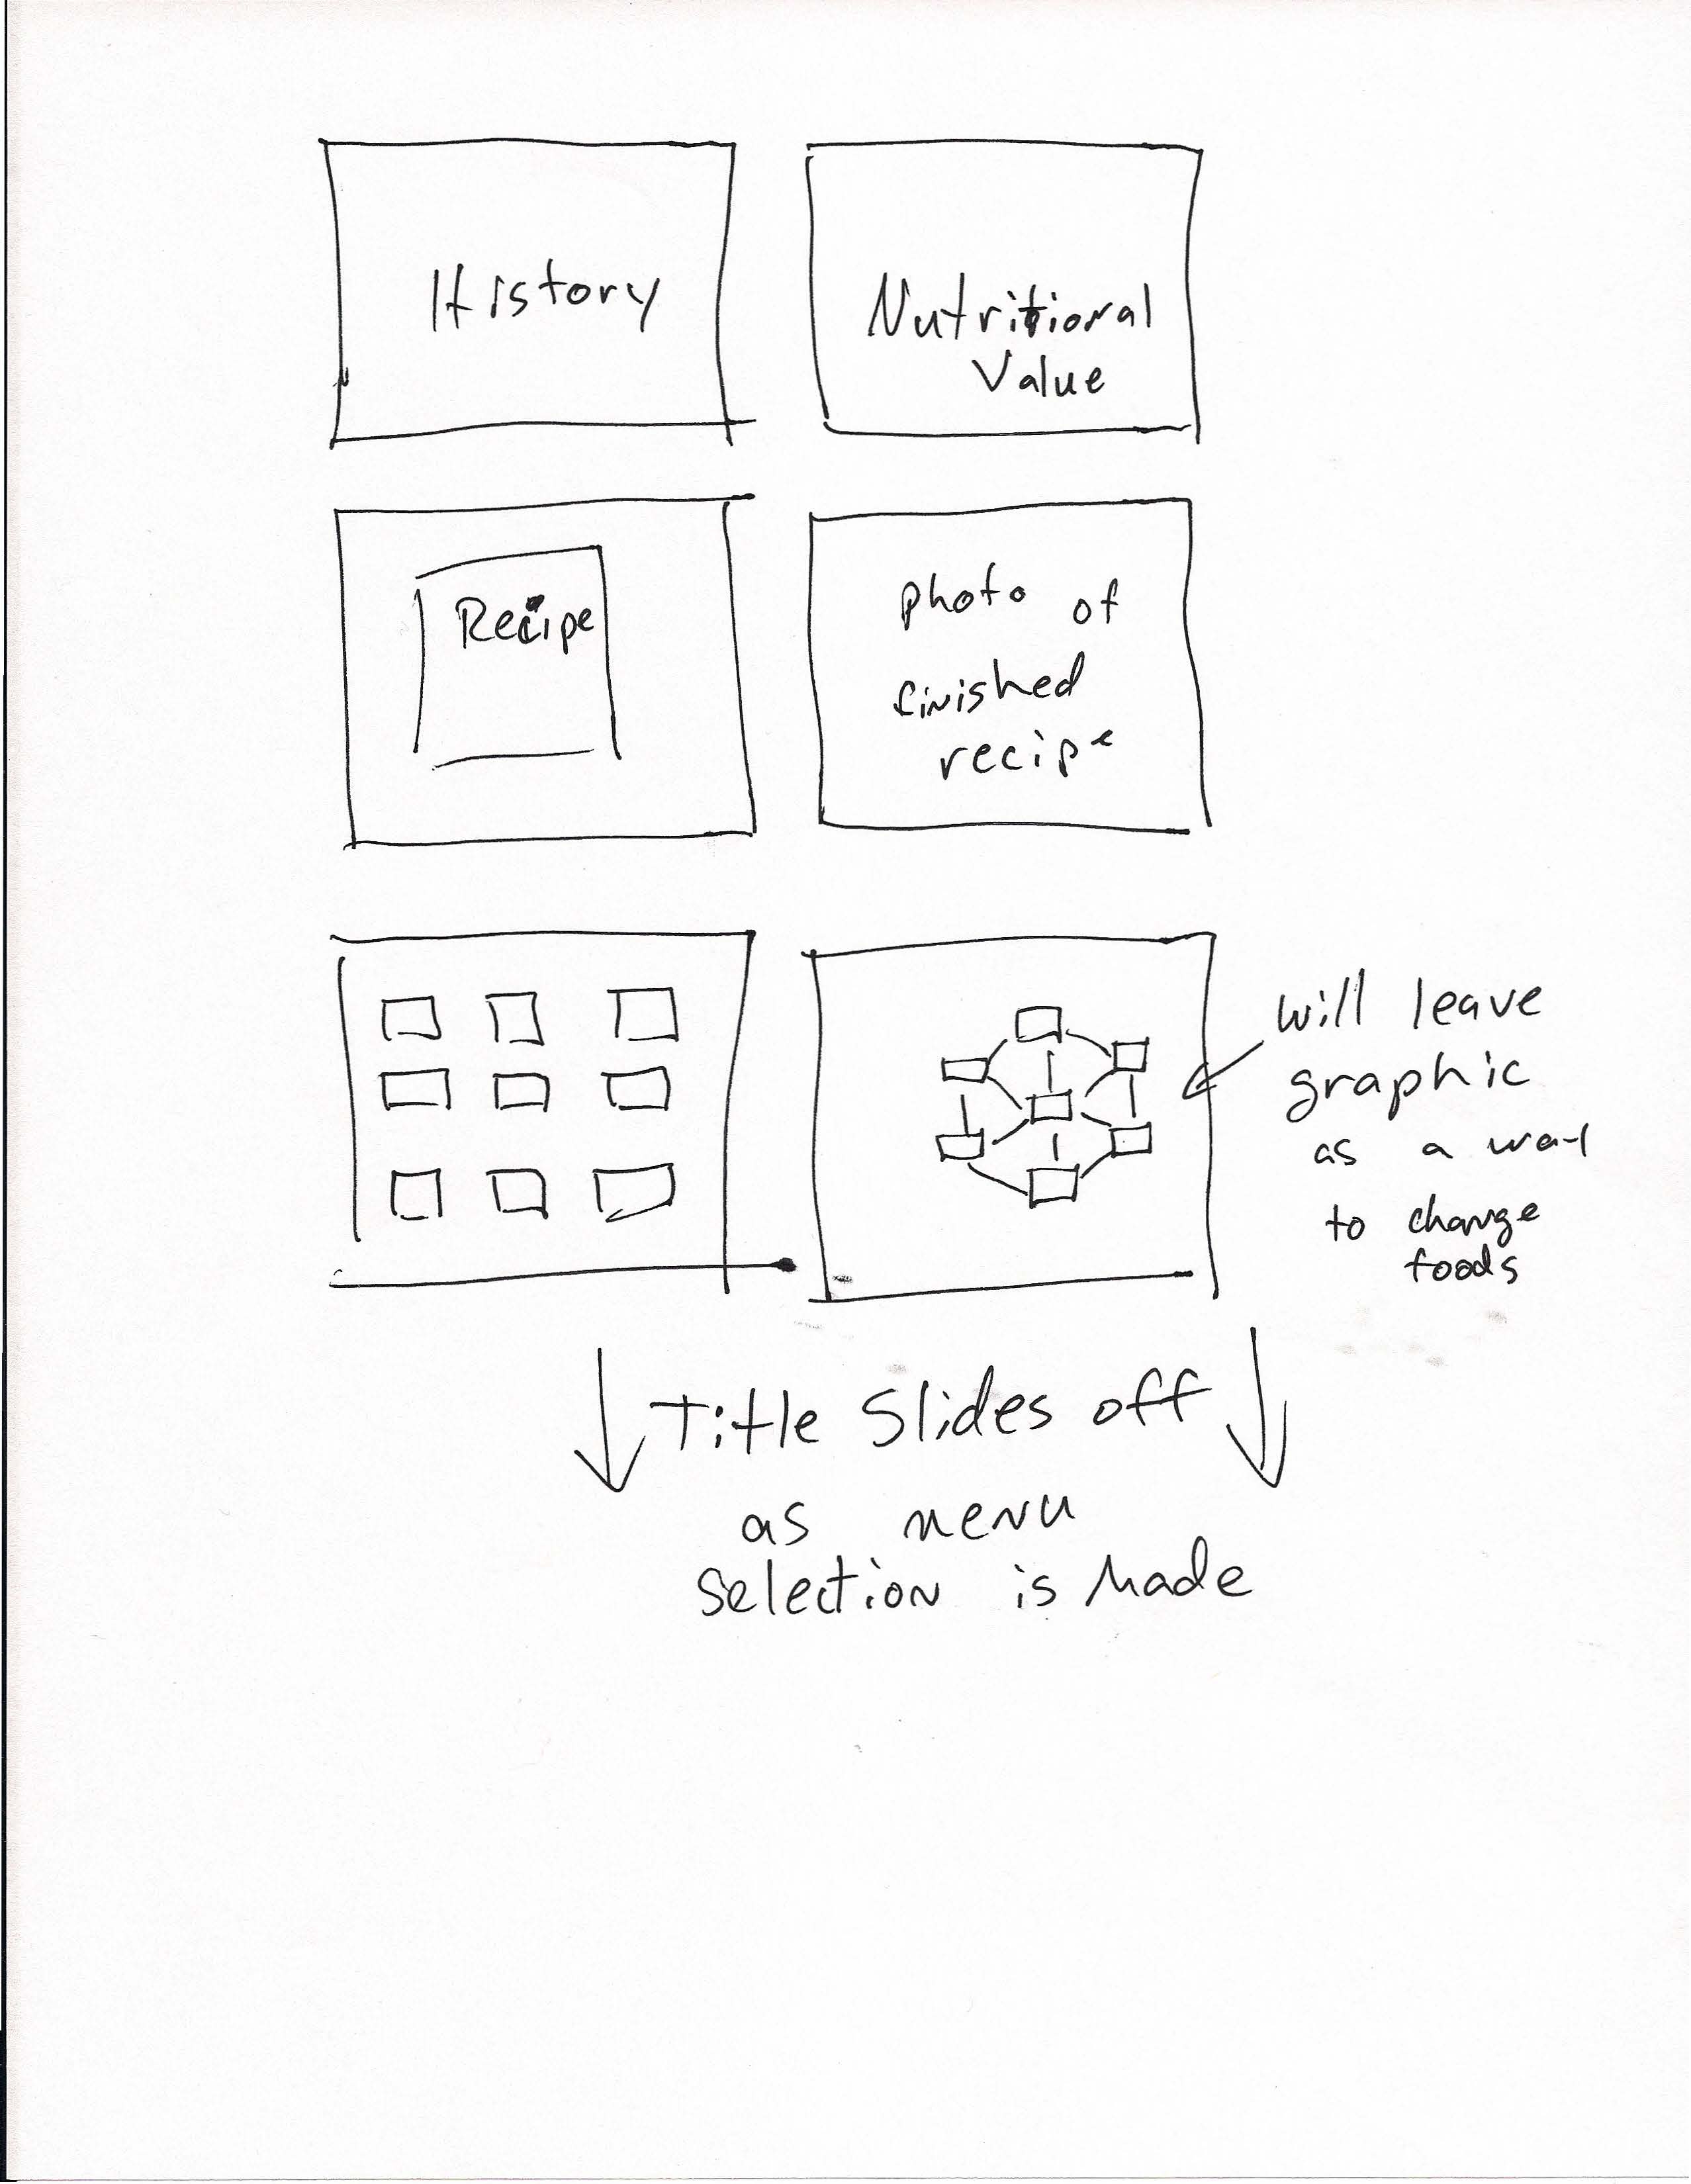 History
Nutritional
Value
Recipe
photo of
finished
recipe
will leave
graphic
as a way
to change
foods
Title Slides off
as menu
selection is Made